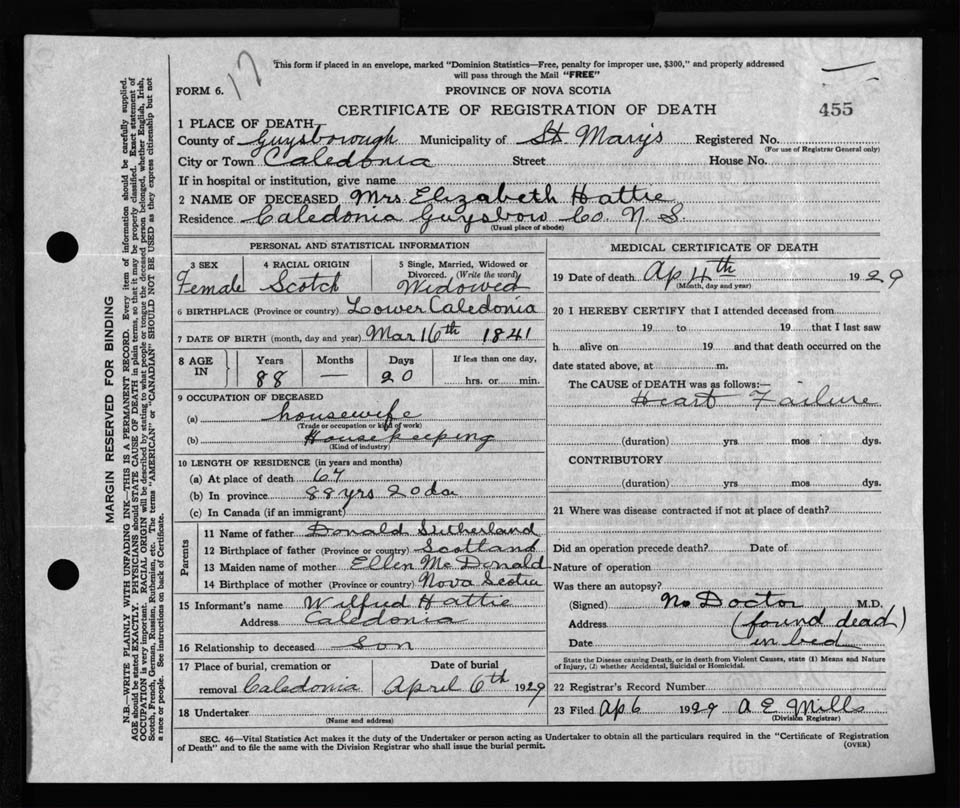 17
This form if placed in an envelope, marked "Dominion Statistics—Free, penalty for improper use, $300," and properly addressed
will pass through the Mail "FREE"
FORM 6.
PROVINCE OF NOVA SCOTIA
CERTIFICATE OF REGISTRATION OF DEATH
455
1 PLACE OF DEATH
County of Guysborough Municipality of St. Mary's Registered No.
(For use of Registrar General only)
City or Town Caledonia Street House No.
If in hospital or institution, give name
2 NAME OF DECEASED Mrs Elizabeth Hattie
Residence Caledonia Guysboro Co. N. S.
(Usual place of abode)
PERSONAL AND STATISTICAL INFORMATION
3 SEX 4 RACIAL ORIGIN 5 Single, Married, Widowed or
Divorced. (Write the word)
Female Scotch Widowed
6 BIRTHPLACE (Province or country) Lower Caledonia
7 DATE OF BIRTH (month, day and year) Mar 16th 1841
8 AGE IN Years Months Days If less than one day,
88 — 20 hrs. or min.
9 OCCUPATION OF DECEASED
(a) housewife
(Trade or occupation or kind of work)
(b) Housekeeping
(Kind of industry)
10 LENGTH OF RESIDENCE (in years and months)
(a) At place of death 67
(b) In province 88 yrs 20 da
(c) In Canada (if an immigrant)
Parents
11 Name of father Donald Sutherland
12 Birthplace of father (Province or country) Scotland
13 Maiden name of mother Ellen McDonald
14 Birthplace of mother (Province or country) Nova Scotia
15 Informant's name Wilfred Hattie
Address Caledonia
16 Relationship to deceased Son
17 Place of burial, cremation or Date of burial
removal Caledonia April 6th 1929
18 Undertaker
(Name and address)
MEDICAL CERTIFICATE OF DEATH
19 Date of death Ap 4th 1929
(Month, day and year)
20 I HEREBY CERTIFY that I attended deceased from
19 to 19 that I last saw
h alive on 19 and that death occurred on the
date stated above, at m.
The CAUSE of DEATH was as follows:—
Heart Failure
(duration) yrs mos dys.
CONTRIBUTORY
(duration) yrs. mos. dys.
21 Where was disease contracted if not at place of death?
Did an operation precede death? Date of
Nature of operation
Was there an autopsy?
(Signed) No Doctor M.D.
Address (found dead)
Date in bed
State the Disease causing Death, or in death from Violent Causes, state (1) Means and Nature
of Injury, (2) whether Accidental, Suicidal or Homicidal.
22 Registrar's Record Number
23 Filed Ap 6 1929 A E Mills
(Division Registrar)
SEC. 46—Vital Statistics Act makes it the duty of the Undertaker or person acting as Undertaker to obtain all the particulars required in the "Certificate of Registration
of Death" and to file the same with the Division Registrar who shall issue the burial permit.
(OVER)
MARGIN RESERVED FOR BINDING
N.B.—WRITE PLAINLY WITH UNFADING INK—THIS IS A PERMANENT RECORD. Every item of information should be carefully supplied.
AGE should be stated EXACTLY. PHYSICIANS should STATE CAUSE OF DEATH in plain terms, so that it may be properly classified. Exact statement of
OCCUPATION is very important. RACIAL ORIGIN will be described by stating to what people or tongue the deceased person belonged, whether English, Irish,
Scotch, French, German, Russian, Ruthenian, etc. The terms "AMERICAN" or "CANADIAN" SHOULD NOT BE USED as they express citizenship but not
a race or people. See instructions on back of Certificate.